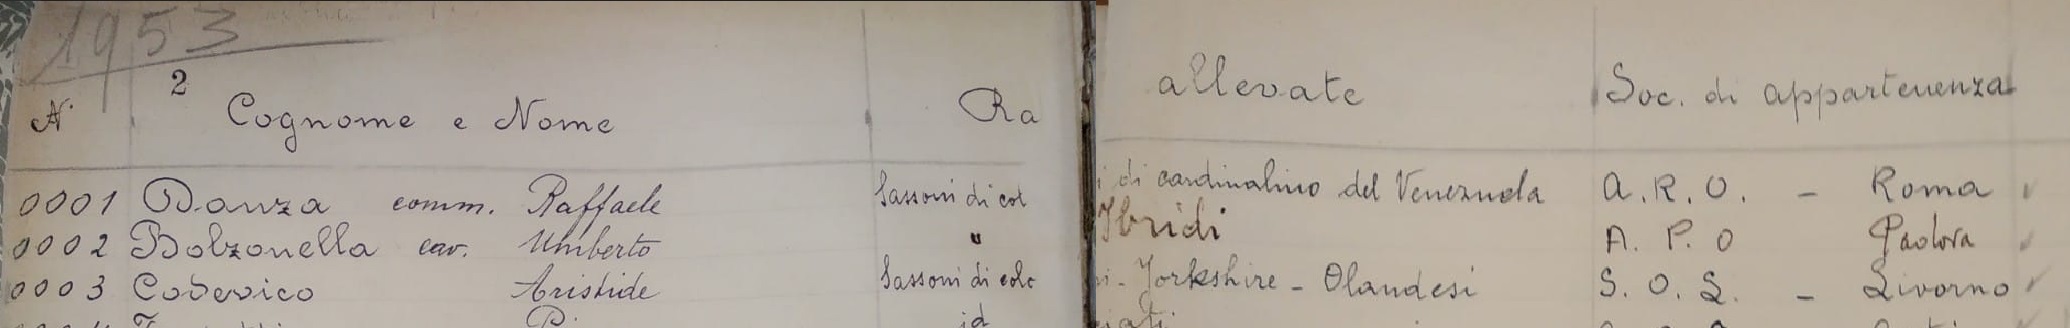 1953
2
N° Cognome e Nome Ra allevate Soc. di appartenenza
0001 Danza comm. Raffaele Sassoni di col i di cardinalino del Venezuela A.R.O. - Roma
0002 Bolzonella cav. Umberto " Ibridi A. P. O Padova
0003 Codevico Aristide Sassoni di colo ni - Yorkshire - Olandesi S. O. L. - Livorno
id